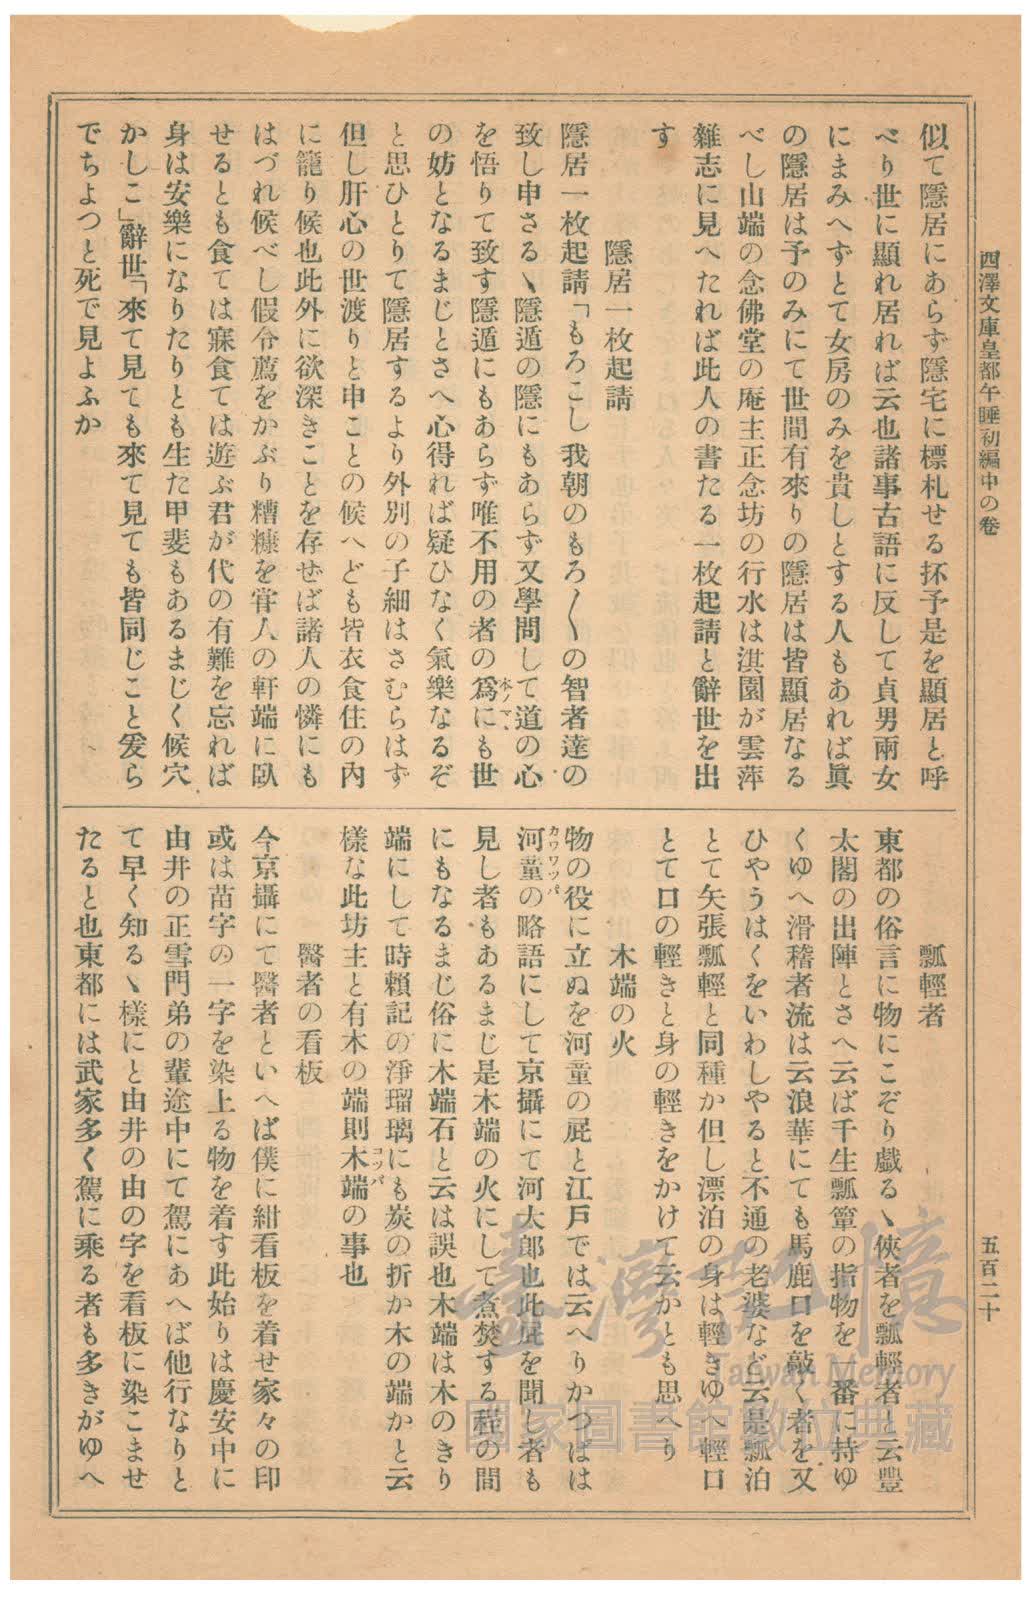 西澤文庫皇都午睡初編中の卷
五百二十
似て隱居にあらず隱宅に標札せる抔予是を顯居と呼
べり世に顯れ居れば云也諸事古語に反して貞男兩女
にまみへずとて女房のみを貴しとする人もあれば眞
の隱居は予のみにて世間有來りの隱居は皆顯居なる
べし山端の念佛堂の庵主正念坊の行水は淇園が雲萍
雜志に見へたれば此人の書たる一枚起請と辭世を出
す
隱居一枚起請
隱居一枚起請「もろこし我朝のもろ〱の智者達の
致し申さるヽ隱遁の隱にもあらず又學問して道の心
を悟りて致す隱遁にもあらず唯不用の者の爲にも世
本ノマヽ
の妨となるまじとさへ心得れば疑ひなく氣樂なるぞ
と思ひとりて隱居するより外別の子細はさむらはず
但し肝心の世渡りと申ことの候へども皆衣食住の內
に籠り候也此外に欲深きことを存せば諸人の憐にも
はづれ候べし假令薦をかぶり糟糠を甞人の軒端に臥
せるとも食ては寐食ては遊ぶ君が代の有難を忘れば
身は安樂になりたりとも生た甲斐もあるまじく候穴
かしこ」辭世「來て見ても來て見ても皆同じこと爰ら
でちよつと死で見よふか
瓢輕者
東都の俗言に物にこぞり戯るヽ俠者を瓢輕者と云豐
太閤の出陣とさへ云ば千生瓢簞の指物を一番に持ゆ
くゆへ滑稽者流は云浪華にても馬鹿口を敲く者を又
ひやうはくをいわしやると不通の老婆など云是瓢泊
とて矢張瓢輕と同種か但し漂泊の身は輕きゆへ輕口
とて口の輕きと身の輕きをかけて云かとも思へり
木端の火
物の役に立ぬを河童の屁と江戶では云へりかつぱは
河童の略語にして京攝にて河太郎也此屁を聞し者も
カワワツパ
見し者もあるまじ是木端の火にして煮焚する程の間
にもなるまじ俗に木端石と云は誤也木端は木のきり
端にして時賴記の淨瑠璃にも炭の折か木の端かと云
樣な此坊主と有木の端則木端の事也
コツパ
醫者の看板
今京攝にて醫者といへば僕に紺看板を着せ家々の印
或は苗字の一字を染上る物を着す此始りは慶安中に
由井の正雪門弟の輩途中にて駕にあへば他行なりと
て早く知るヽ樣にと由井の由の字を看板に染こませ
たると也東都には武家多く駕に乘る者も多きがゆへ
臺灣記憶
Taiwan Memory
國家圖書館數位典藏